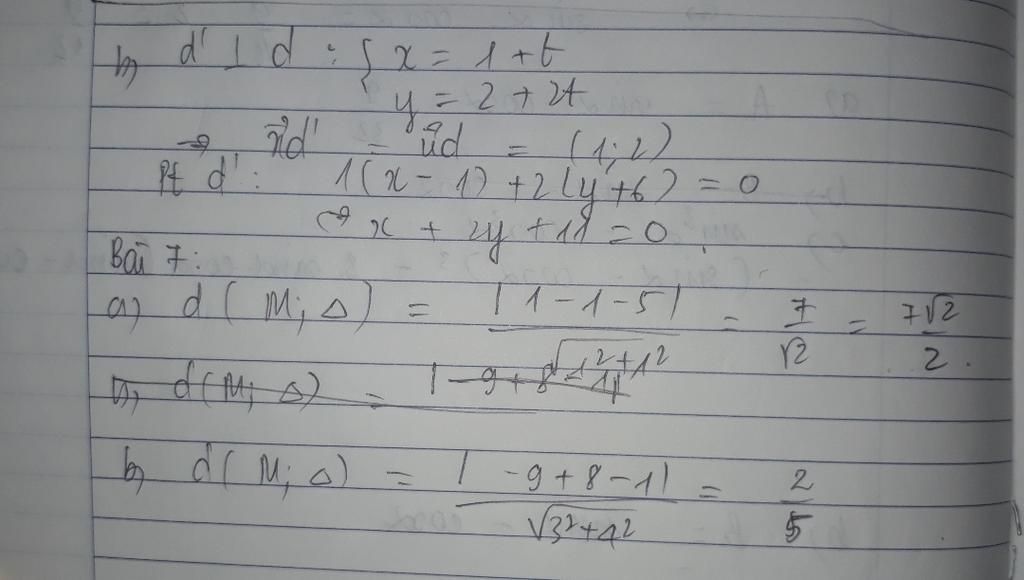 b) d' ⊥ d : { x = 1 + t
y = 2 + 2t
→ n⃗d' = u⃗d = (1; 2)
Pt d' : 1(x - 1) + 2(y + 6) = 0
↔ x + 2y + 11 = 0.
Bài 7:
a) d(M; Δ) = |1 - 1 - 5| / √1² + 1² = 7/√2 = 7√2/2.
b) d(M; Δ) = |-9 + 8 - 1| / √3² + 4² = 2/5